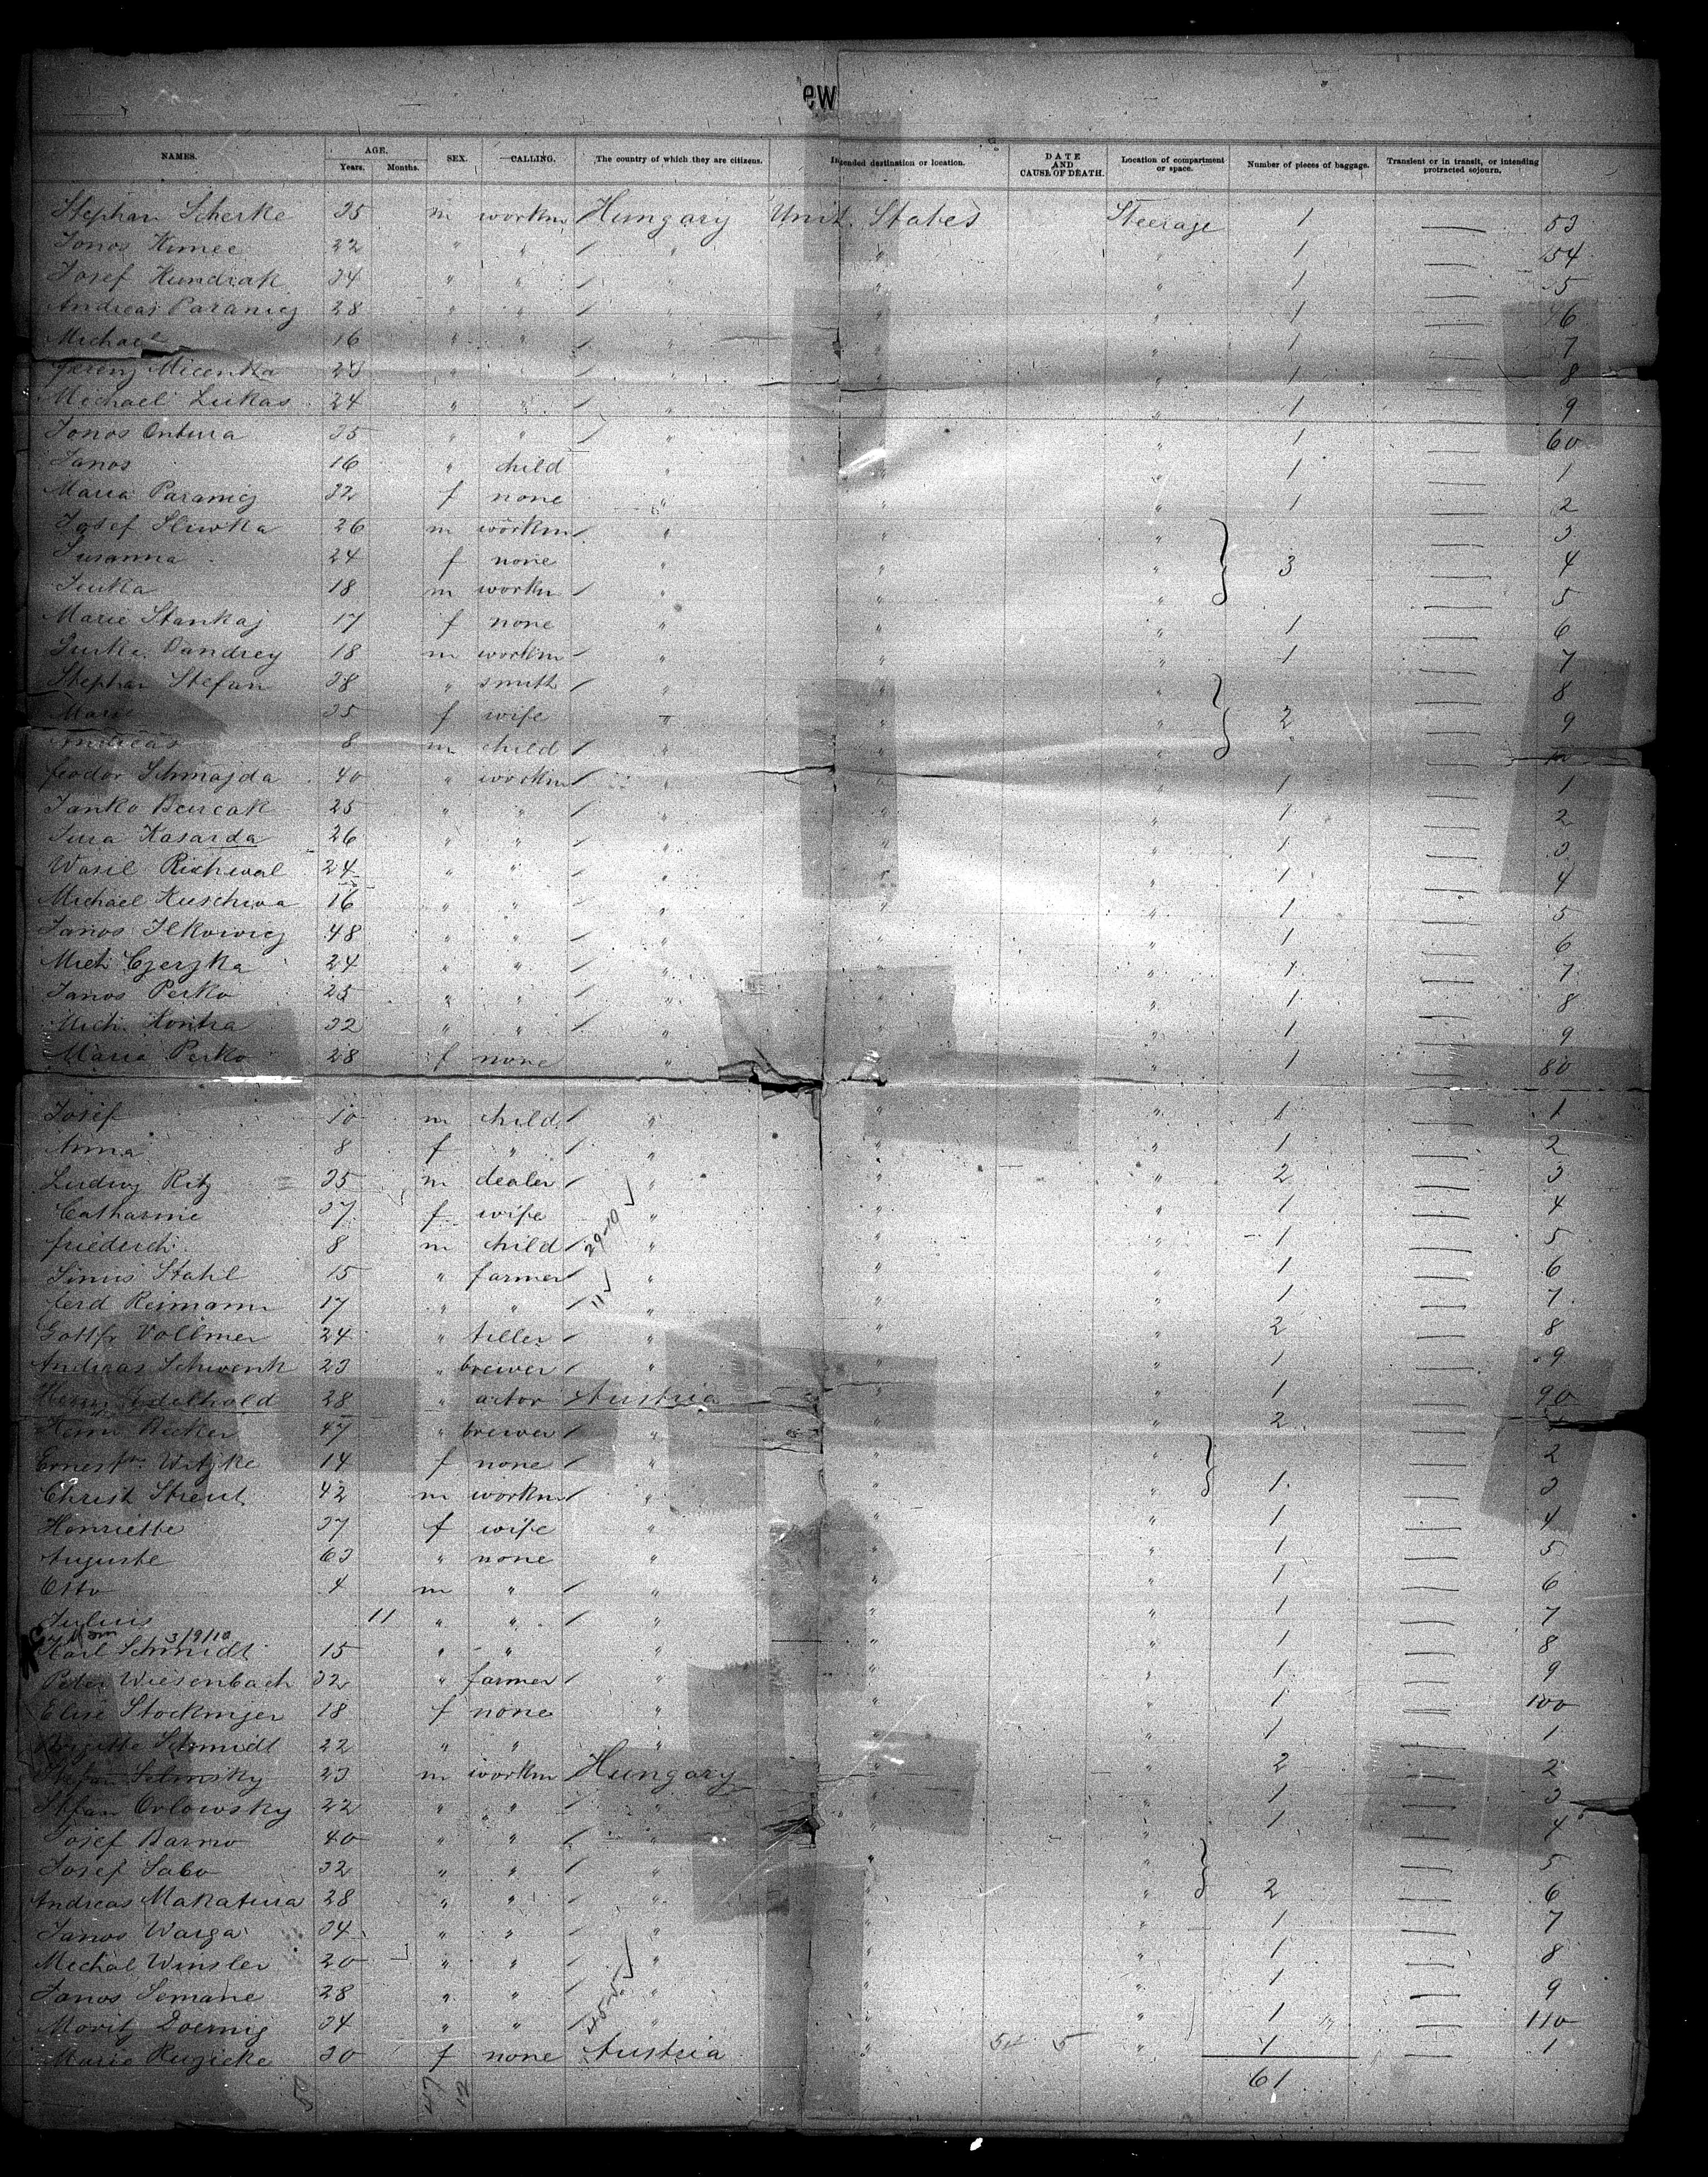 ew
NAMES. AGE. Years. Months. SEX. CALLING. The country of which they are citizens. Intended destination or location. DATE AND CAUSE OF DEATH. Location of compartment or space. Number of pieces of baggage. Transient or in transit, or intending protracted sojourn.
Stephan Scherke 35 m workm Hungary Unit. States Steerage 1 — 53
Janos Kimec 32 " " " " " 1 — 54
Josef Hundrak 34 " " " " " 1 — 5
Andreas Paranicz 28 " " " " " 1 — 6
Michael 16 " " " " " 1 — 7
Ferenz Micenka 23 " " " " " 1 — 8
Michael Lukas 24 " " " " " 1 — 9
Janos Ontura 35 " " " " " 1 — 60
Janos 16 " child " " " 1 — 1
Maria Paranicz 32 f none " " " 1 — 2
Josef Sliwka 26 m workm " " " — 3
Susanna 24 f none " " " 3 — 4
Jurka 18 m workm " " " — 5
Marie Stankaj 17 f none " " " 1 — 6
Jurke Dandrey 18 m workm " " " 1 — 7
Stephan Stefan 38 " smith " " " — 8
Marie 35 f wife " " " 2 — 9
Andreas 8 m child " " " — 70
Feodor Schmajda 40 " workm " " " 1 — 1
Janko Bencak 25 " " " " " 1 — 2
Jura Kasarda 26 " " " " " 1 — 3
Wasil Richwal 24 " " " " " 1 — 4
Michael Kuschwa 16 " " " " " 1 — 5
Janos Ilkovicz 48 " " " " " 1 — 6
Mich Czerzka 24 " " " " " 1 — 7
Janos Perko 25 " " " " " 1 — 8
Mich. Kontra 32 " " " " " 1 — 9
Maria Perko 28 f none " " " 1 — 80
Josef 10 m child " " " 1 — 1
Anna 8 f " " " " 1 — 2
Ludwig Ritz 35 m dealer " " " 2 — 3
Catharine 37 f wife " " " 1 — 4
Friederich 8 m child " " " 1 — 5
Stahl 15 " farmer " " " 1 — 6
Ferd Reimann 17 " " " " " 1 — 7
Gottfr Vollmer 24 " tiller " " " 2 — 8
Andreas Schwenk 23 " brewer " " " 1 — 9
Edelhold 28 " actor Austria " " 1 — 90
Henri Becker 47 " brewer " " " 2 —
Ernestine Witzke 14 f none " " " — 2
Christ Streul 42 m workm " " " 1 — 3
Henriette 37 f wife " " " 1 — 4
Auguste 63 " none " " " 1 — 5
Otto 4 m " " " " 1 — 6
Julius 11 " " " " " 1 — 7
3/9/10
Karl Schmidt 15 " " " " " 1 — 8
Peter Wiesenbach 32 " farmer " " " 1 — 9
Elise Stockinger 18 f none " " " 1 — 100
Brigitte Schmidt 22 " " " " " 1 — 1
Stefan Selmosky 23 m workm Hungary " " 2 — 2
Stefan Orlowsky 22 " " " " " 1 — 3
Josef Barno 40 " " " " " 1 — 4
Josef Sabo 32 " " " " " — 5
Andreas Makatura 28 " " " " " 2 — 6
Janos Warga 34 " " " " " 1 — 7
Michal Winsler 20 " " " " " 1 — 8
Janos Semane 28 " " " " " 1 — 9
Moritz Doernig 34 " " " " " 1 — 110
Marie Ruzicke 30 f none Austria " 5 " 1 — 1
47 12 61